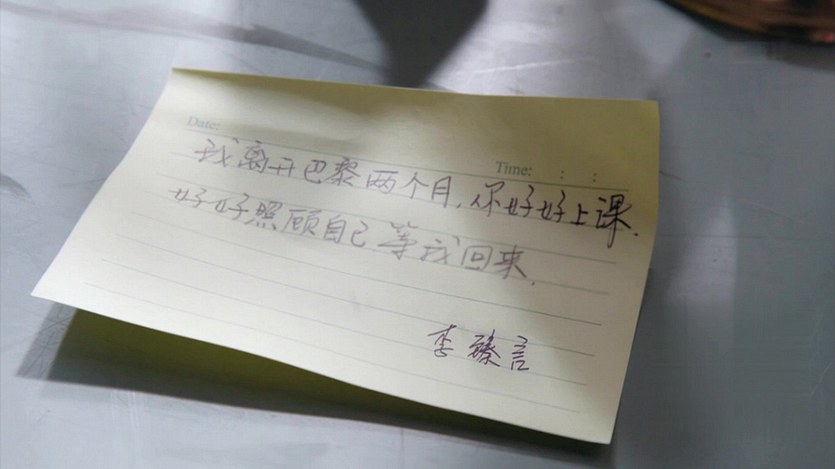 Date:
Time: : :
我离开巴黎两个月,你好好上课.
好好照顾自己等我回来.
李臻言